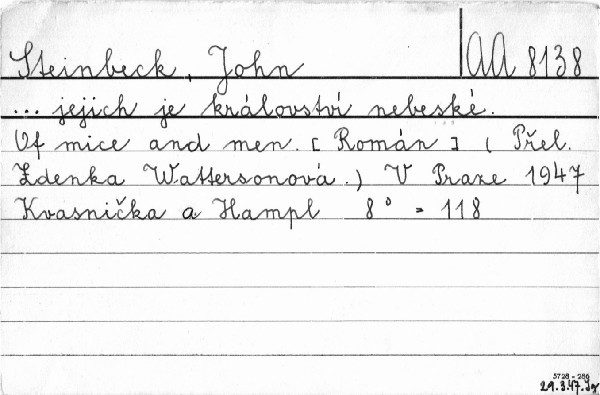 Steinbeck, John AA 8138
... jejich je království nebeské.
Of mice and men. [Román] (Přel.
Zdenka Wattersonová.) V Praze 1947
Kvasnička a Hampl 8° = 118
5728 - 256
21.3.47.